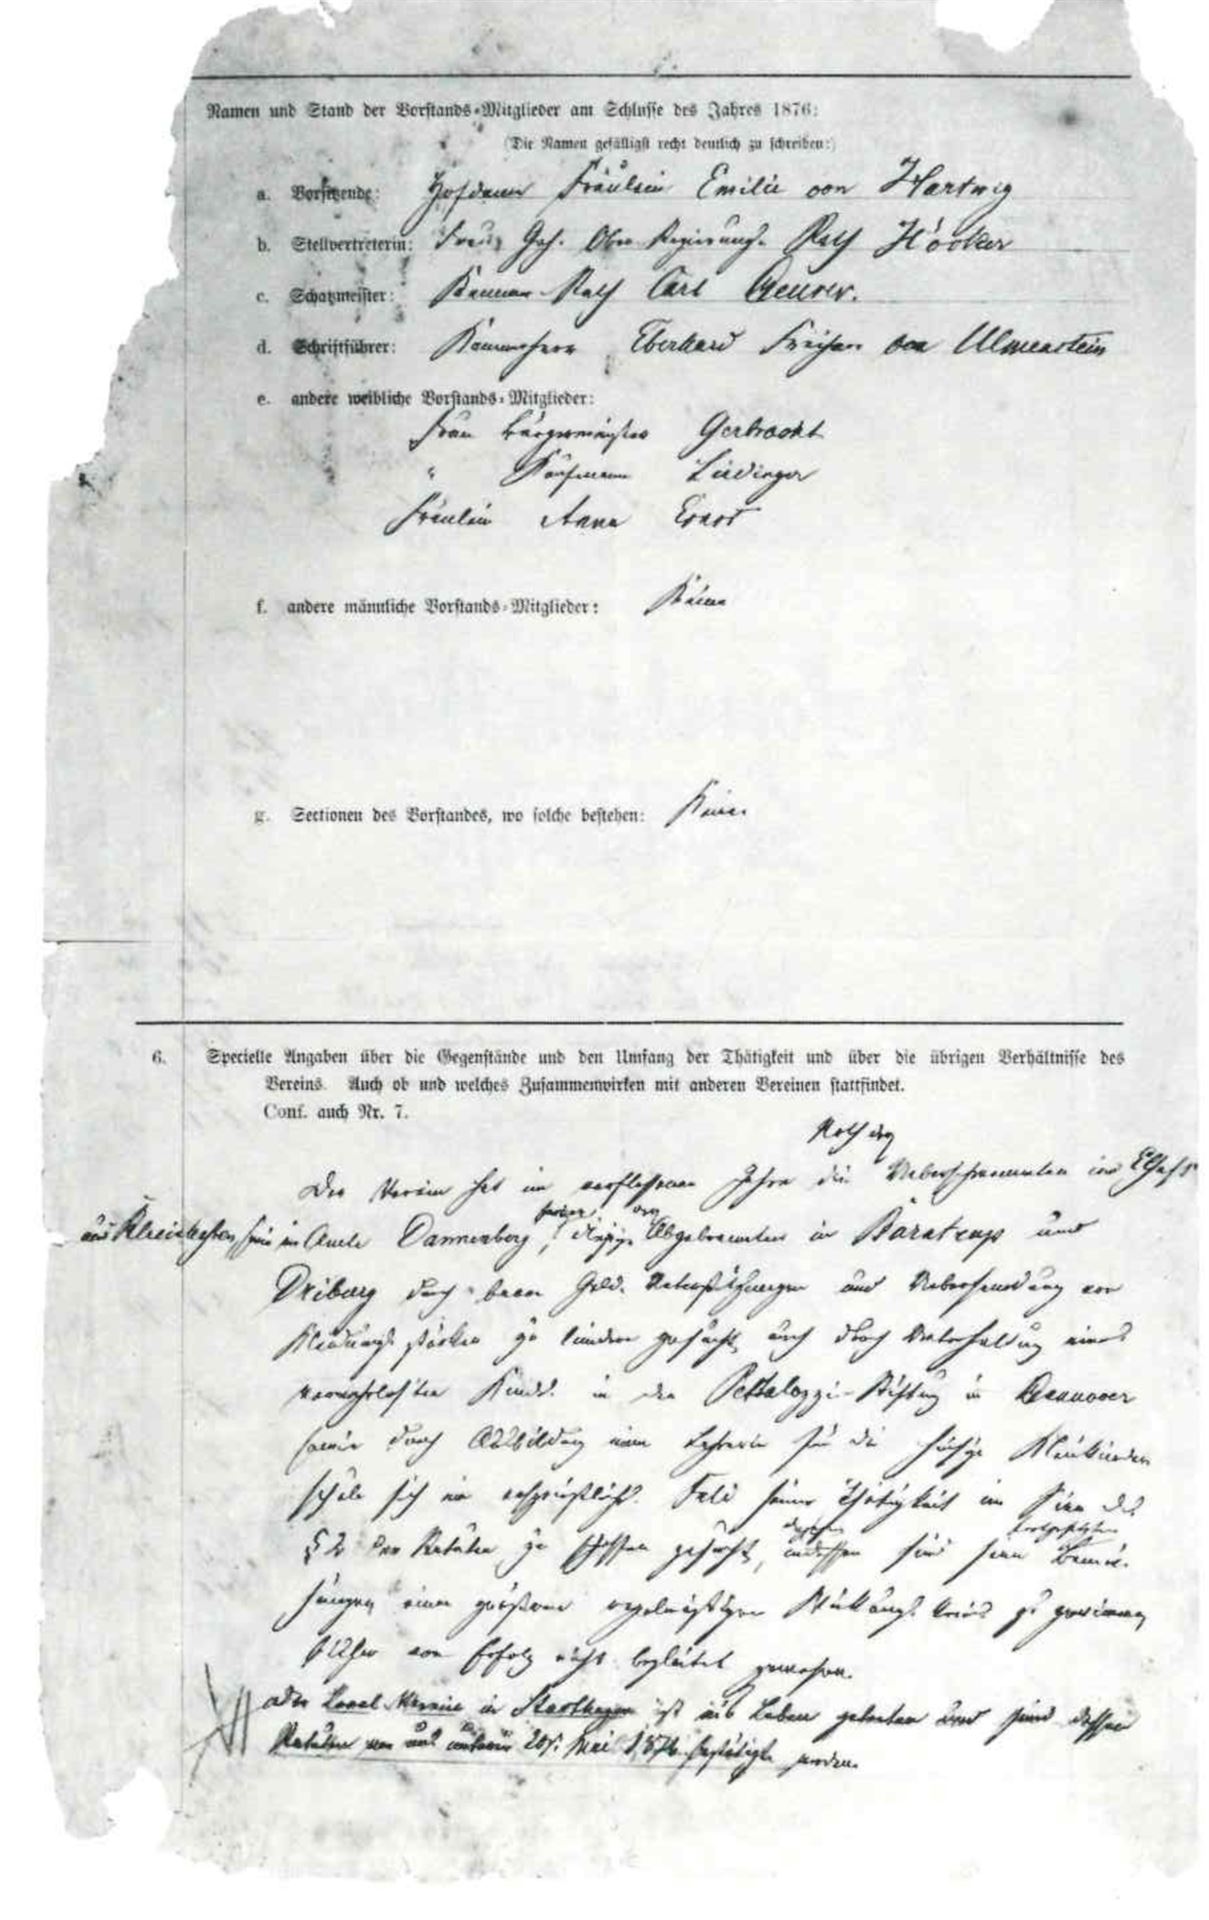 Namen und Stand der Vorstands-Mitglieder am Schlusse des Jahres 1876:
(Die Namen gefälligst recht deutlich zu schreiben:)
a. Vorsitzende: Hofdame Fräulein Emilie von Hartwig
b. Stellvertreterin: Frau Geh. Ober Regierungs Rath Höcker
c. Schatzmeister: Kammer-Rath Carl
d. Schriftführer: Kammerherr Eberhard Freiherr von Ulmenstein
e. andere weibliche Vorstands-Mitglieder:
Frau Bürgermeister Gerbracht
" Kaufmann Lüdinger
Fräulein Anna
f. andere männliche Vorstands-Mitglieder: Keine
g. Sectionen des Vorstandes, wo solche bestehen: Keine
6. Specielle Angaben über die Gegenstände und den Umfang der Thätigkeit und über die übrigen Verhältnisse des
Vereins. Auch ob und welches Zusammenwirken mit anderen Vereinen stattfindet.
Conf. auch Nr. 7.
Noth der
Der Verein hat im verflossenen Jahre die Ueberschwemmten im Elsaß
im Amte Dannenberg, ferner der Abgebrannten in Barntrup und
Driburg durch baare Geld-Unterstützungen und Uebersendung von
Kleidungsstücken zu lindern gesucht, auch durch Unterhaltung eines
verwahrlosten Kindes in der Pestalozzi-Stiftung in Hannover
sowie durch Ausbildung einer Lehrerin für die hiesige Kleinkinder
schule sich ein ersprießliches Feld seiner Thätigkeit im Sinne des
§ 2 der Statuten zu schaffen gesucht, indessen sind seine fortgesetzten Bemü-
hungen einen größeren regelmäßigen Wirkungskreis zu gewinnen
bisher von Erfolg nicht begleitet gewesen.
Local-Verein in Stadthagen ist ins Leben getreten und sind dessen
Statuten von uns unterm 20. Mai bestätigt worden.